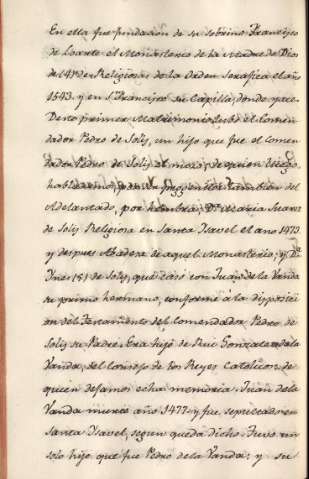 En ella fue fundacion de su sobrino Francisco
de Loarte el Monasterio de la Madre de Dios
de Religiosas de la Orden Serafica el año
1543. y en S. Francisco su Capilla, donde yace.
De este primer Matrimonio el Comen
dador Pedro de Solis, un hijo que fue el comen
dador Pedro de Solis el mozo; de quien luego
hablaremos, por ser progenitor tambien del
Adelantado, por hembra; D.ª Maria Suarez
de Solis Religiosa en Santa Isavel el año 1473.
y despues Abadesa de aquel Monasterio; y D.ª
Ines de Solis, que casó con Juan de la Vanda
su primo hermano, conforme á la disposici
on del Testamento del Comendador Pedro de
Solis su Padre. Era hijo de Rui Gonzalez de la
Vanda, del Consejo de los Reyes Catolicos, de
quien dejamos echa memoria. Juan de la
Vanda murio año 1477. y fue sepultado en
Santa Isavel, segun queda dicho. Tuvo un
solo hijo que fue Pedro de la Vanda; y su